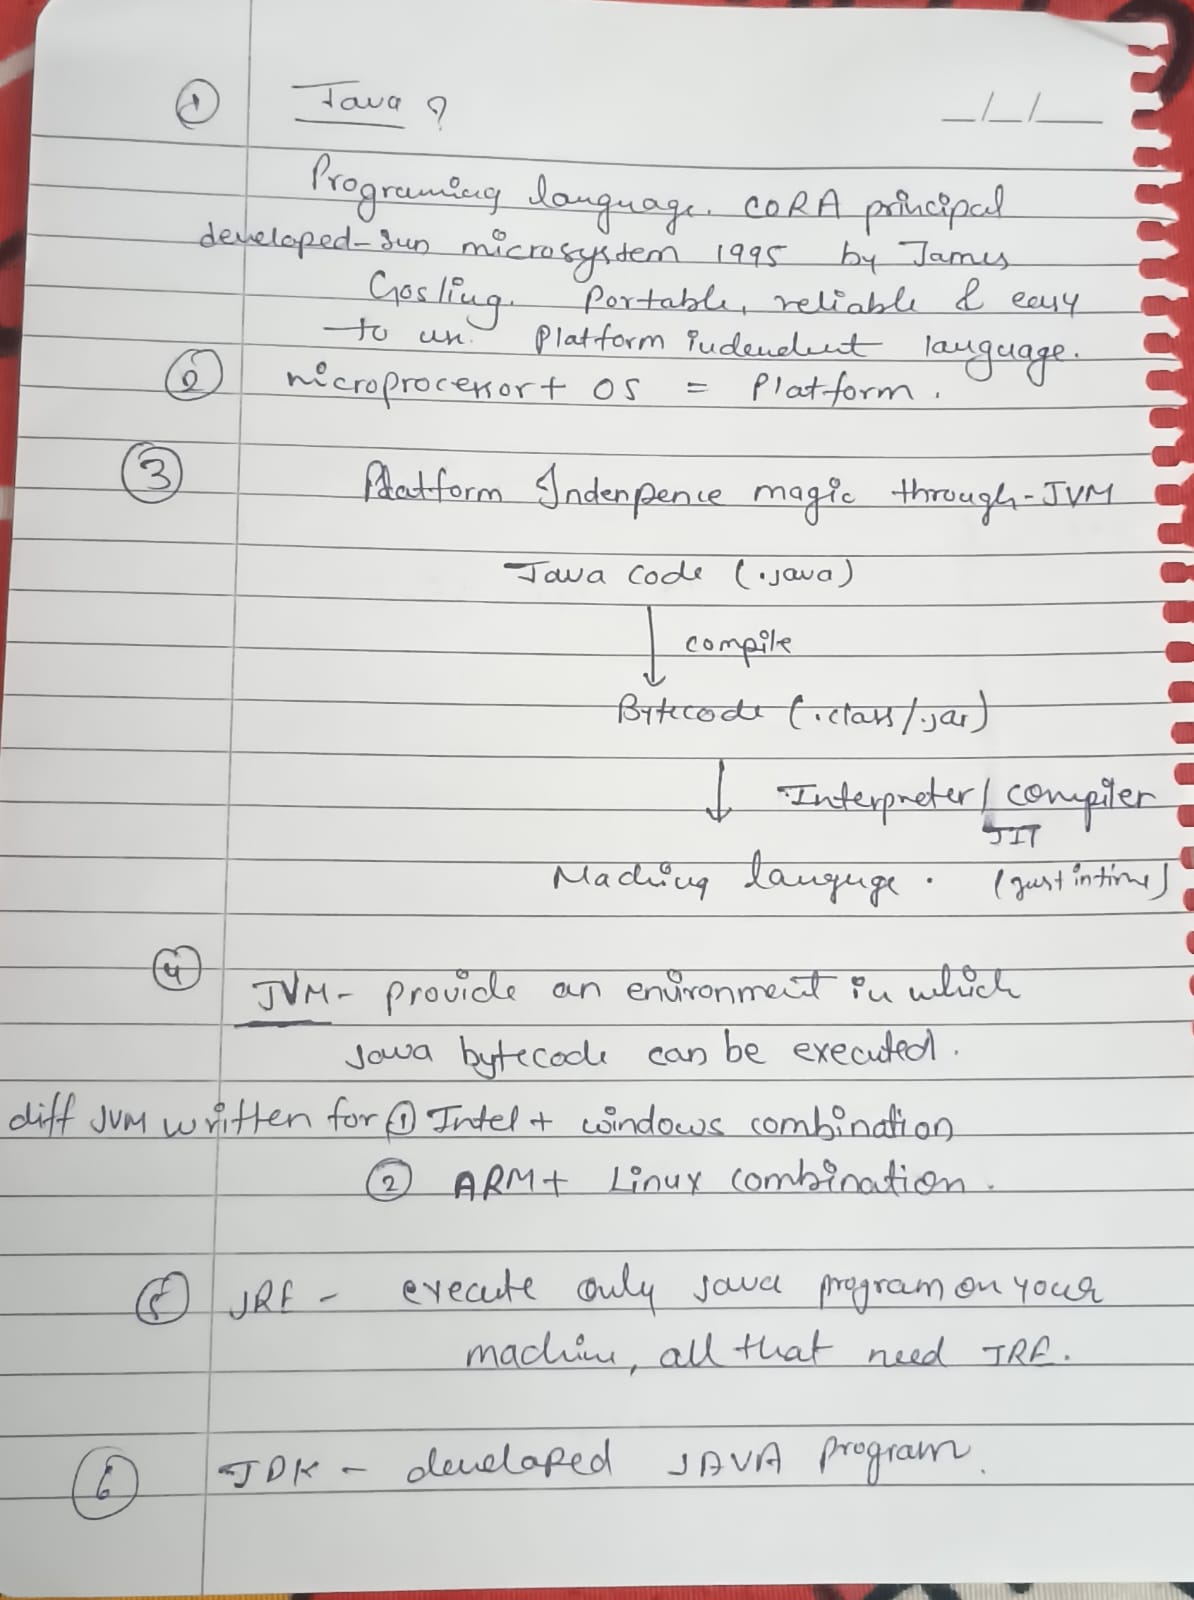 ① Java ?
_/_/__
Programing language. CORA principal
developed-Sun microsystem 1995 by James
Gosling. Portable, reliable & easy
to use. Platform indendent language.
② microprocessor + OS = Platform.
③ Platform Indenpence magic through-JVM
Java code (.java)
↓ compile
Bytecode (.class/.jar)
↓ Interpreter/compiler
JIT
Maching languge. (just in time)
④ JVM - provide an environment in which
java bytecode can be executed.
diff JVM written for ① Intel + windows combination
② ARM + Linux combination.
⑤ JRE - execute only java program on your
machine, all that need JRE.
⑥ JDK - developed JAVA program.